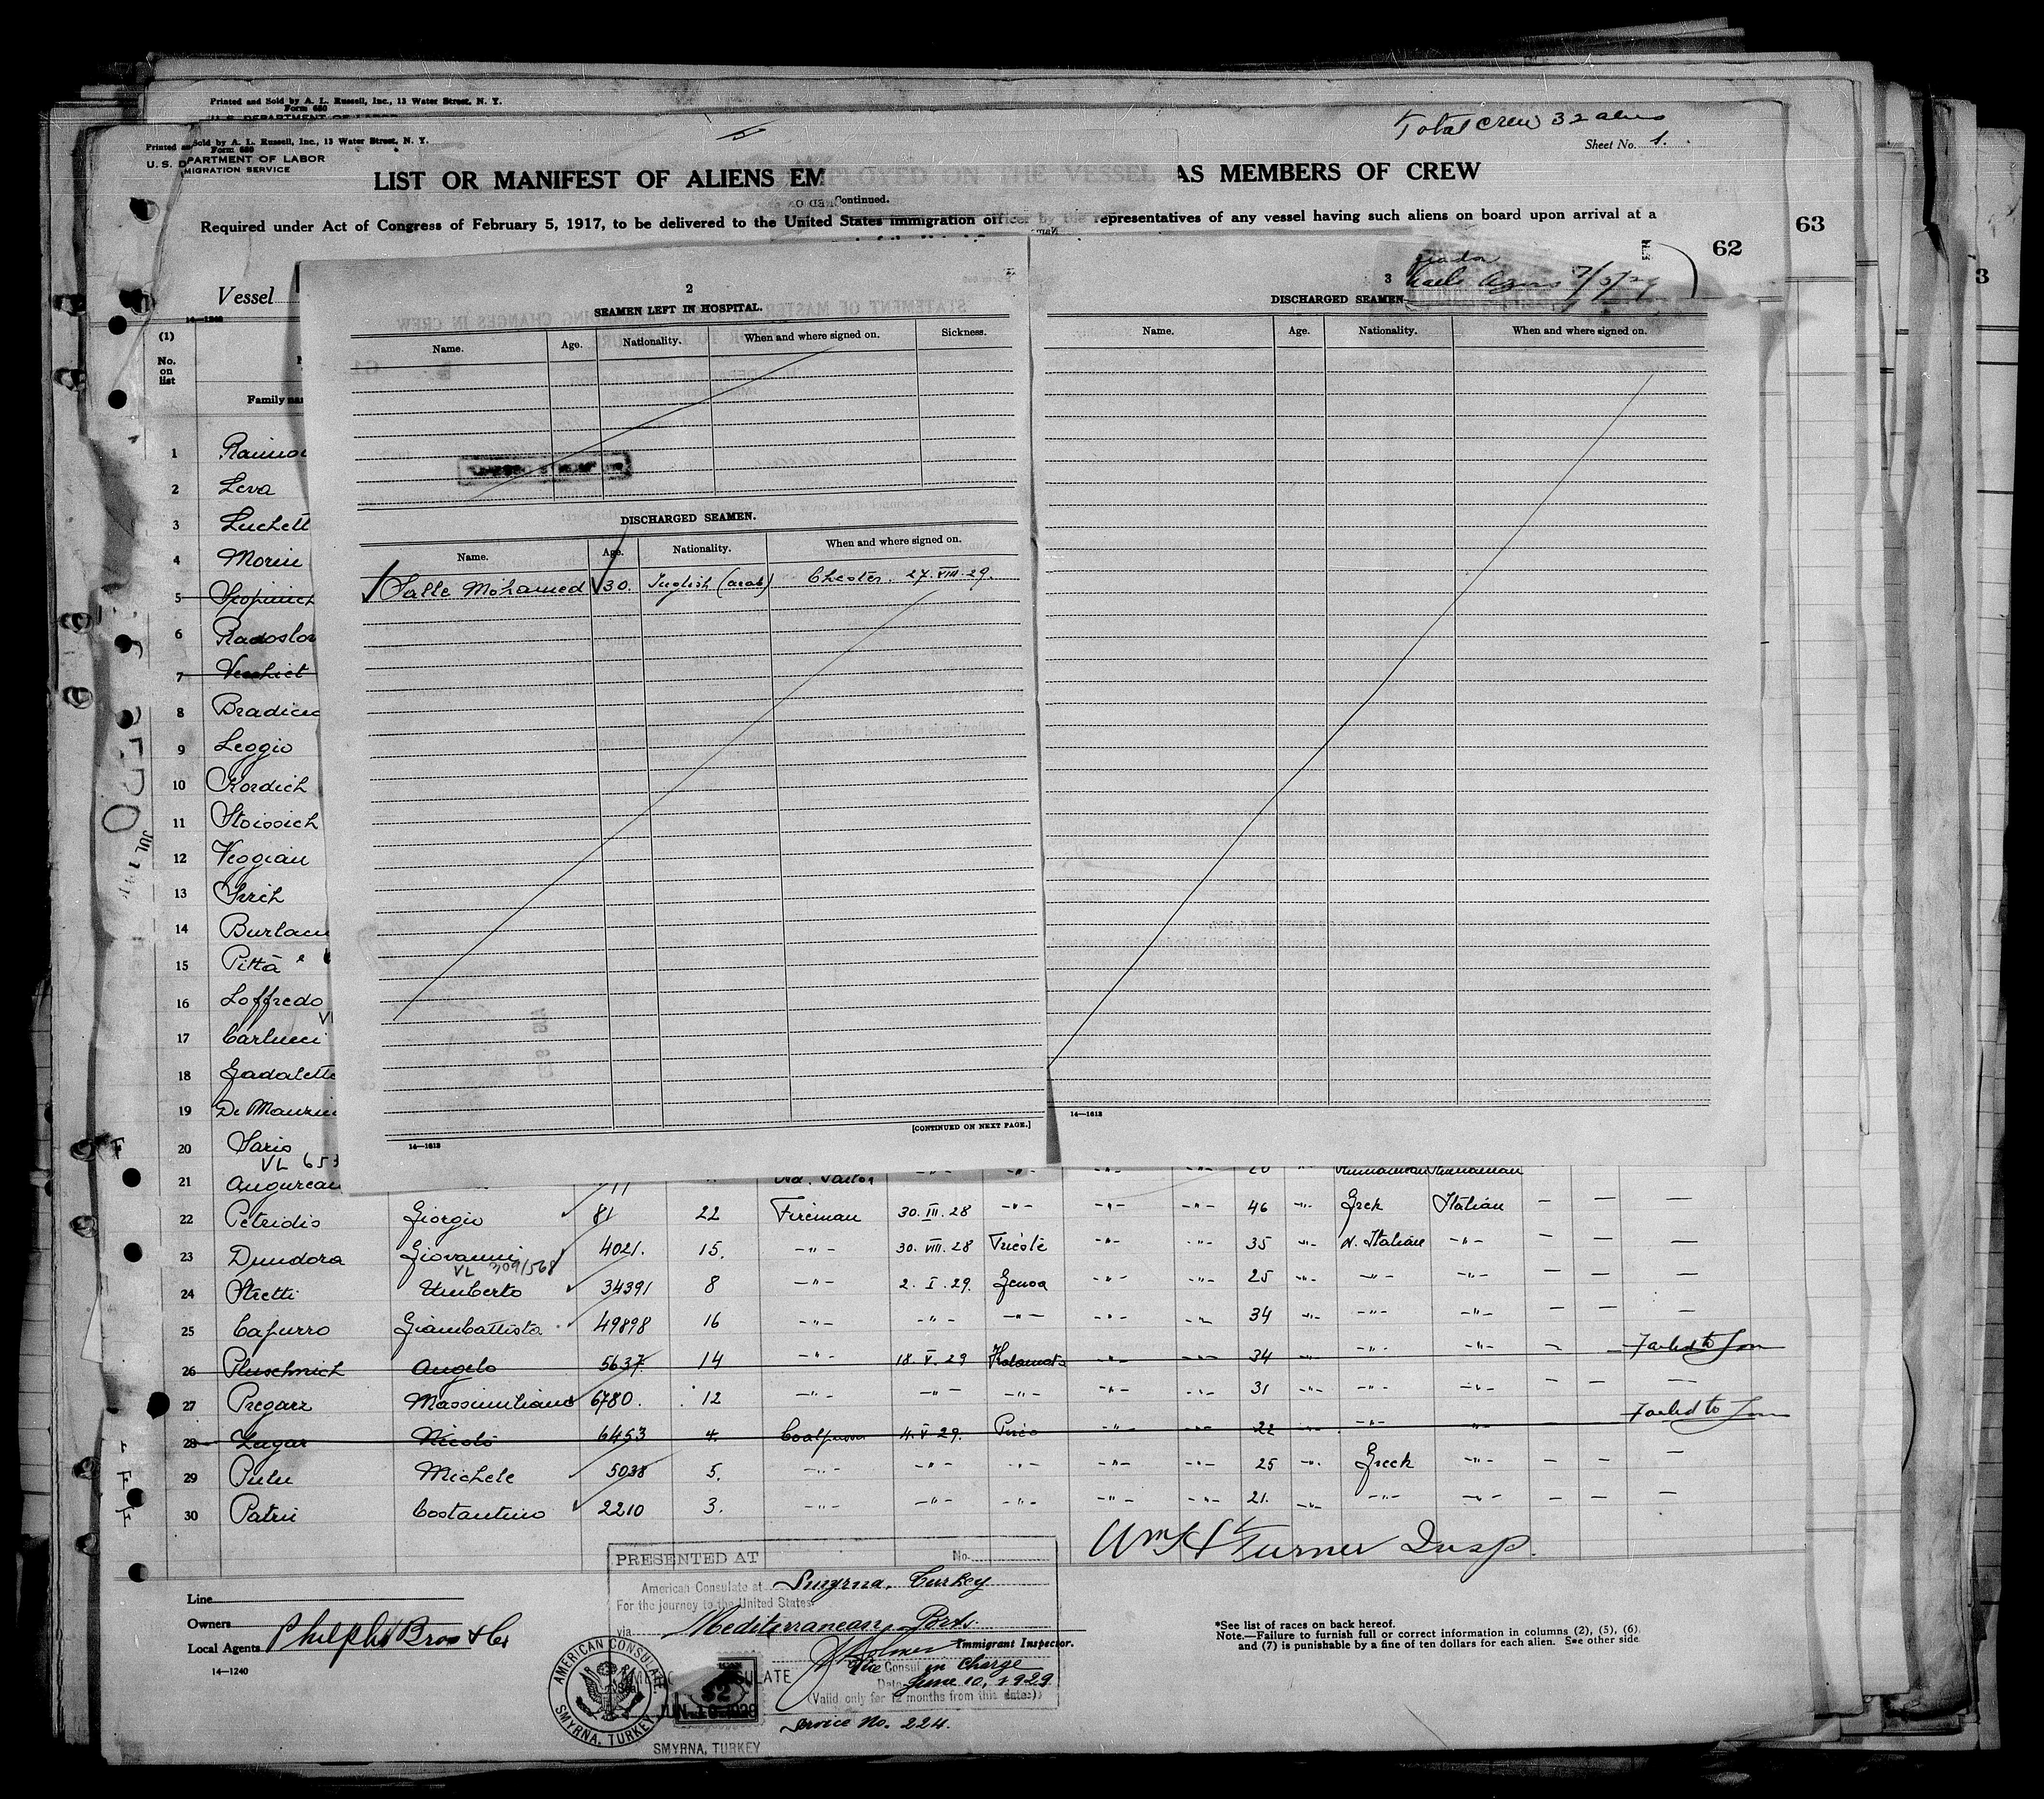 Printed and Sold by A. L. Russell, Inc., 13 Water Street, N. Y.
Form 680
U. S. DEPARTMENT OF LABOR
Total crew 32 aliens
Printed and Sold by A. L. Russell, Inc., 13 Water Street, N. Y.
Form 680
Sheet No. 1.
U. S. DEPARTMENT OF LABOR
MIGRATION SERVICE
LIST OR MANIFEST OF ALIENS EMPLOYED ON THE VESSEL AS MEMBERS OF CREW
Continued.
Required under Act of Congress of February 5, 1917, to be delivered to the United States immigration officer by the representatives of any vessel having such aliens on board upon arrival at a
63
62
3
Vessel
14—1240
(1)
No.
on
list
Family name
2
SEAMEN LEFT IN HOSPITAL.
Name. Age. Nationality. When and where signed on. Sickness.
DISCHARGED SEAMEN.
Name. Age. Nationality. When and where signed on.
Salle Mohamed 30. Inglish (arab) Chester. 27.VIII.29.
[CONTINUED ON NEXT PAGE.]
14—1613
3
7/5/29
DISCHARGED SEAMEN
Name. Age. Nationality. When and where signed on.
14—1613
1 Raimon
2 Leva
3 Luchett
4 Morin
5 Scopinich
6 Radoslov
7
8 Bradici
9 Leggio
10 Kordich
11 Stoissich
12 Veggian
13 Srrich
14 Burlacu
15 Pittà
16 Loffredo
17 Carlucci
18 Gadalette
19 De Maurin
20 Sario
VL 653
21 Angurean
22 Petridis Giorgio 81 22 Fireman 30.III.28 -"- -"- -"- 46 -"- Grek Italian — — —
23 Dundora Giovanni 4021. 15. -"- 30.VIII.28 Trieste -"- -"- 35 -"- N. Italian -"- — — —
VL 3091568
24 Stretti Umberto 34391 8 -"- 2.I.29. Genoa -"- -"- 25 -"- -"- -"- — — —
25 Capurro Giambattista 49898 16 -"- -"- -"- -"- -"- 34 -"- -"- -"- — — —
26 Pluschnich Angelo 5637 14 -"- 18.V.29 Kalamata -"- -"- 34 -"- -"- — Failed to Join
27 Pregarz Massimiliano 6780. 12 -"- -"- -"- -"- -"- 31 -"- -"- -"- — — —
28 Zagar Nicolò 6453 4. Coalpasser 4.V.29. Pireo -"- -"- 22 -"- -"- -"- Failed to Join
29 Pulu Michele 5038 5. -"- -"- -"- -"- -"- 25 -"- Greek -"- — — —
30 Patrii Costantino 2210 3. -"- -"- -"- -"- -"- 21. -"- -"- -"- — — —
Wm H Turner Insp.
PRESENTED AT No.
American Consulate at Smyrna, Turkey
For the journey to the United States
via Mediterranean Ports.
Immigrant Inspector.
Vice Consul in charge
Date June 10, 1929
(Valid only for 12 months from this date)
Service No. 224.
Line
Owners
Local Agents Philphs Bros & Co
14—1240
AMERICAN CONSULATE
SMYRNA, TURKEY
AMERICAN CONSULATE
JUN 10 1929
SMYRNA, TURKEY
*See list of races on back hereof.
Note.—Failure to furnish full or correct information in columns (2), (5), (6)
and (7) is punishable by a fine of ten dollars for each alien. See other side